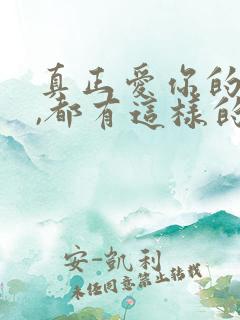 真正愛你的
,都有這樣的
安-凱利
未經同意禁止轉載